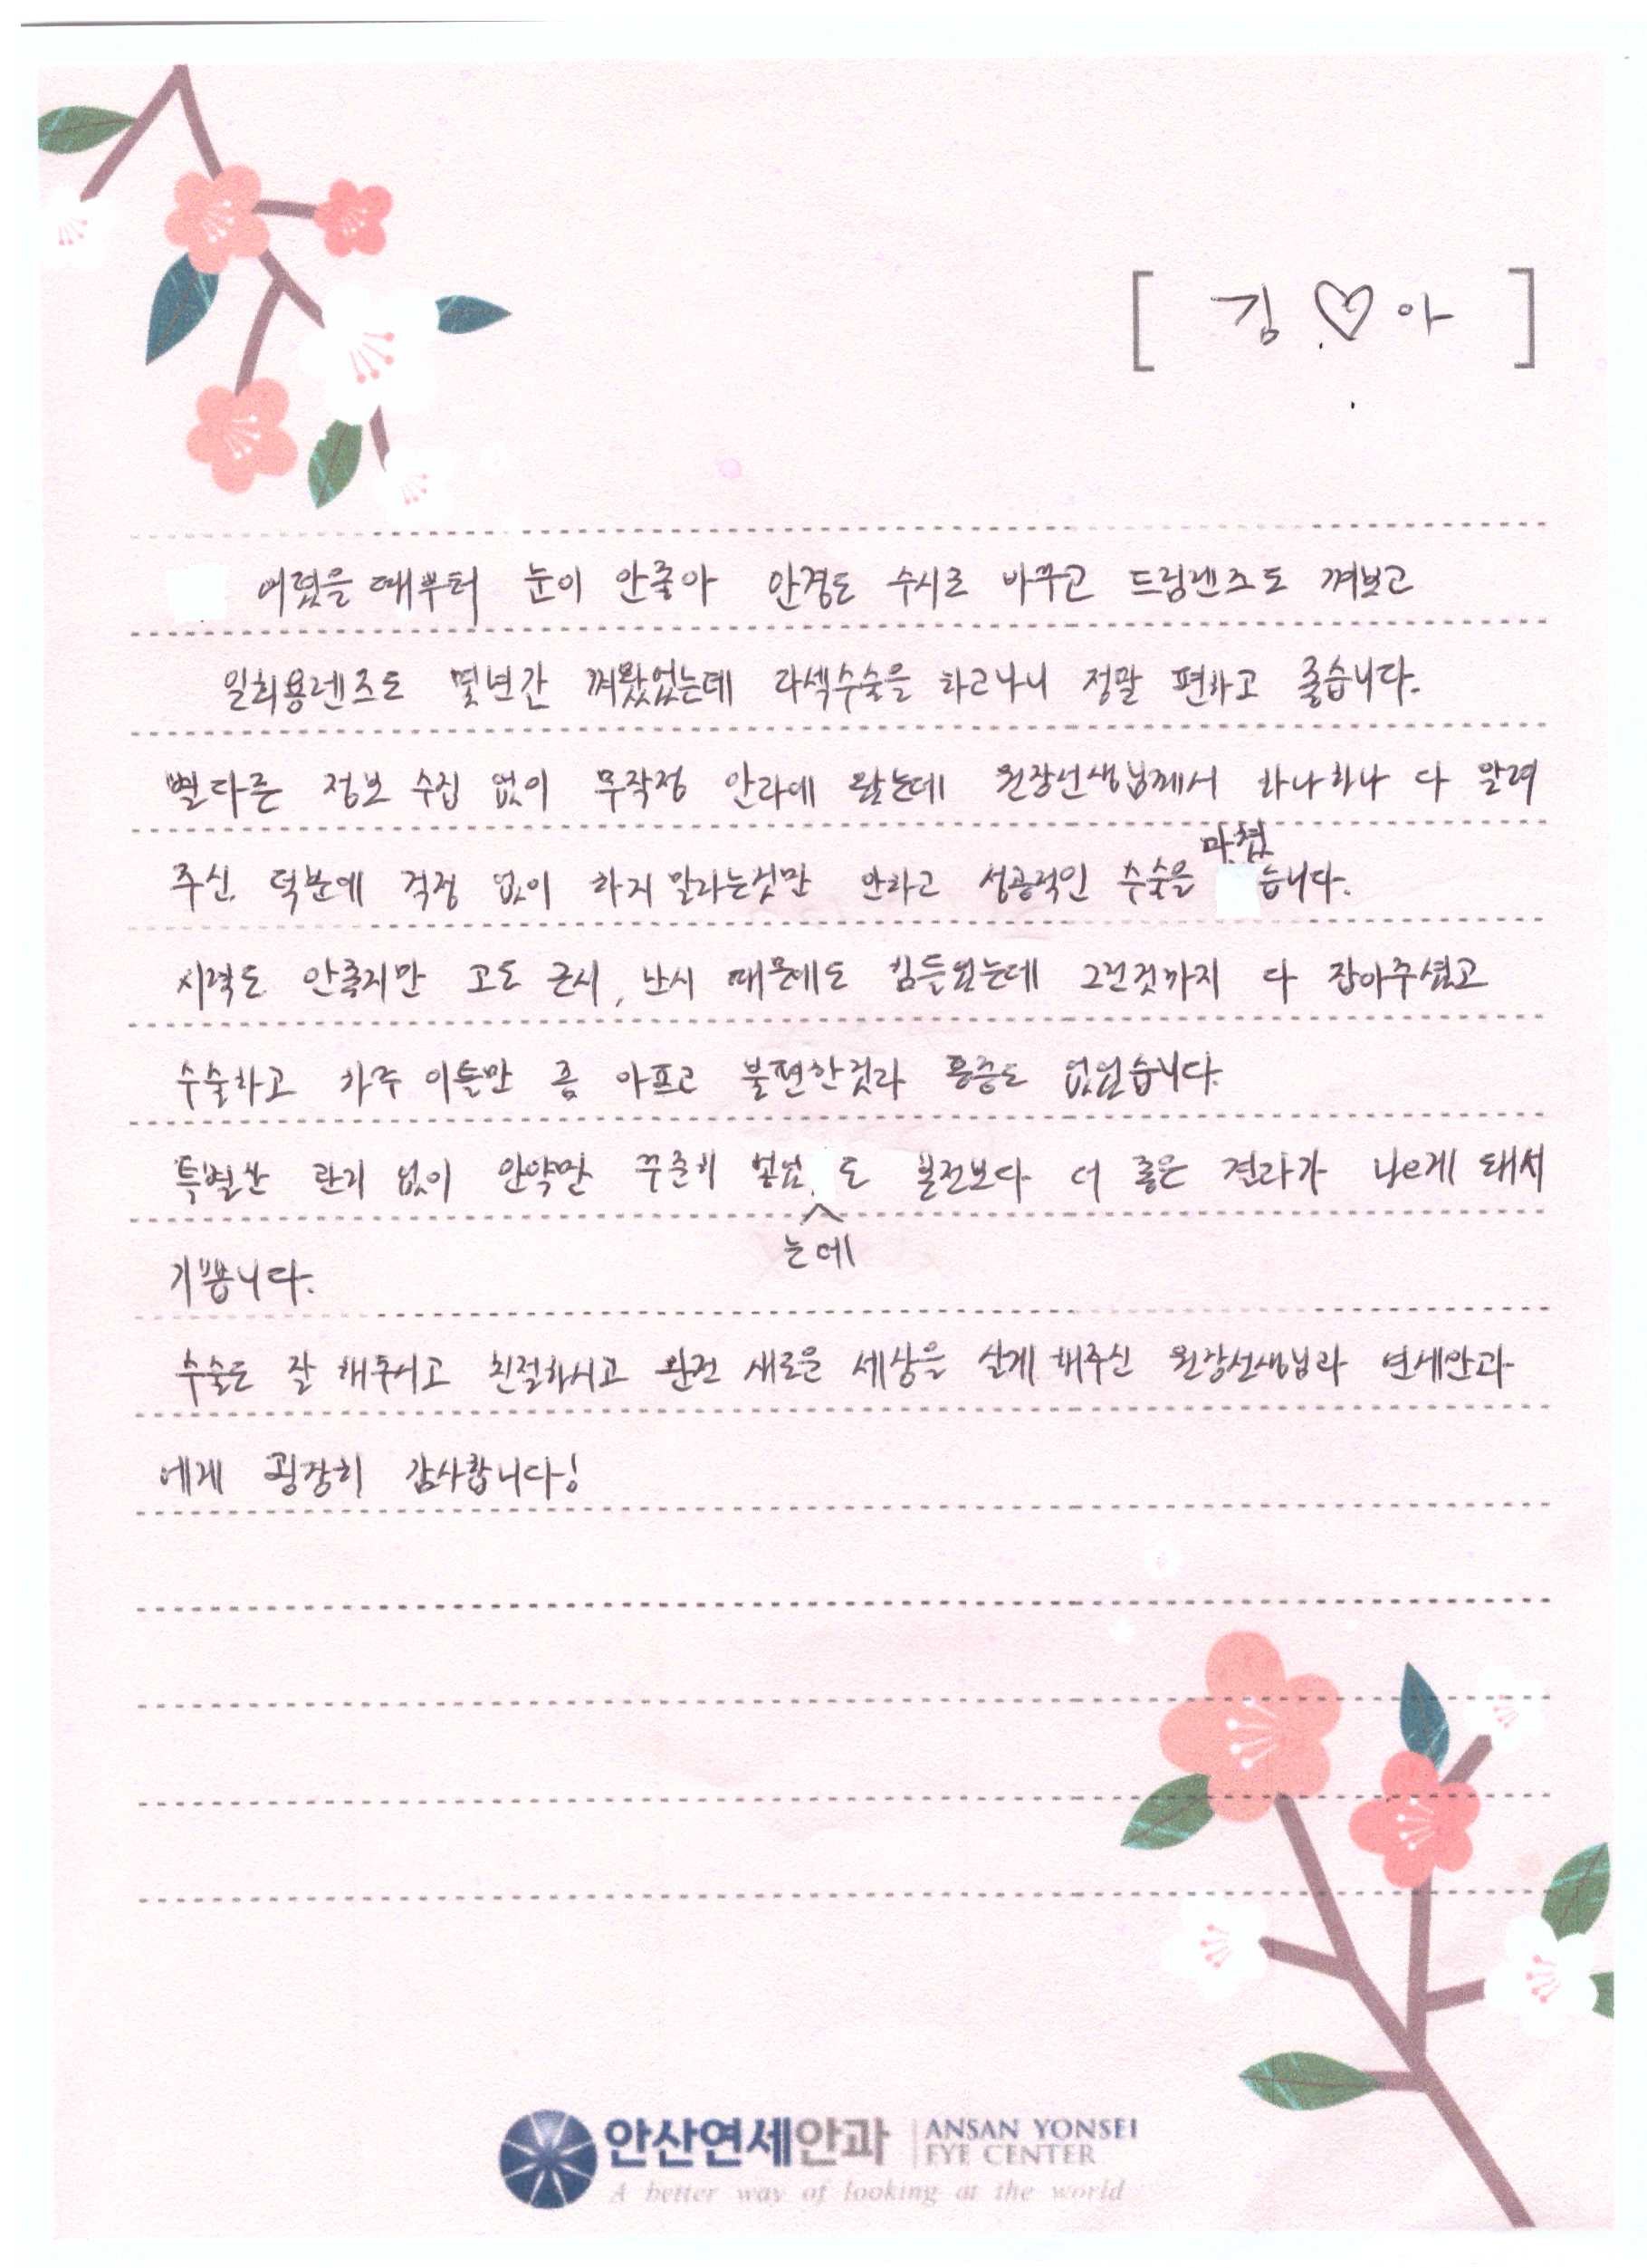 [ 김 ♡ 아 ]
어렸을 때부터 눈이 안좋아 안경도 수시로 바꾸고 드림렌즈도 껴보고
일회용렌즈도 몇년간 껴왔었는데 라섹수술을 하고나니 정말 편하고 좋습니다.
별다른 정보 수집 없이 무작정 안과에 왔는데 원장선생님께서 하나하나 다 알려
주신 덕분에 걱정 없이 하지 말라는것만 안하고 성공적인 수술을 마쳤습니다.
시력도 안좋지만 고도 근시, 난시 때문에도 힘들었는데 그런것까지 다 잡아주셨고
수술하고 하루 이틀만 좀 아프고 불편한것과 통증도 없었습니다.
특별한 관리 없이 안약만 꾸준히 넣었는데도 훨전보다 더 좋은 결과가 나오게 돼서
기쁩니다.
수술도 잘 해주시고 친절하시고 완전 새로운 세상을 살게 해주신 원장선생님과 연세안과
에게 굉장히 감사합니다!
안산연세안과 ANSAN YONSEI
EYE CENTER
A better way of looking at the world